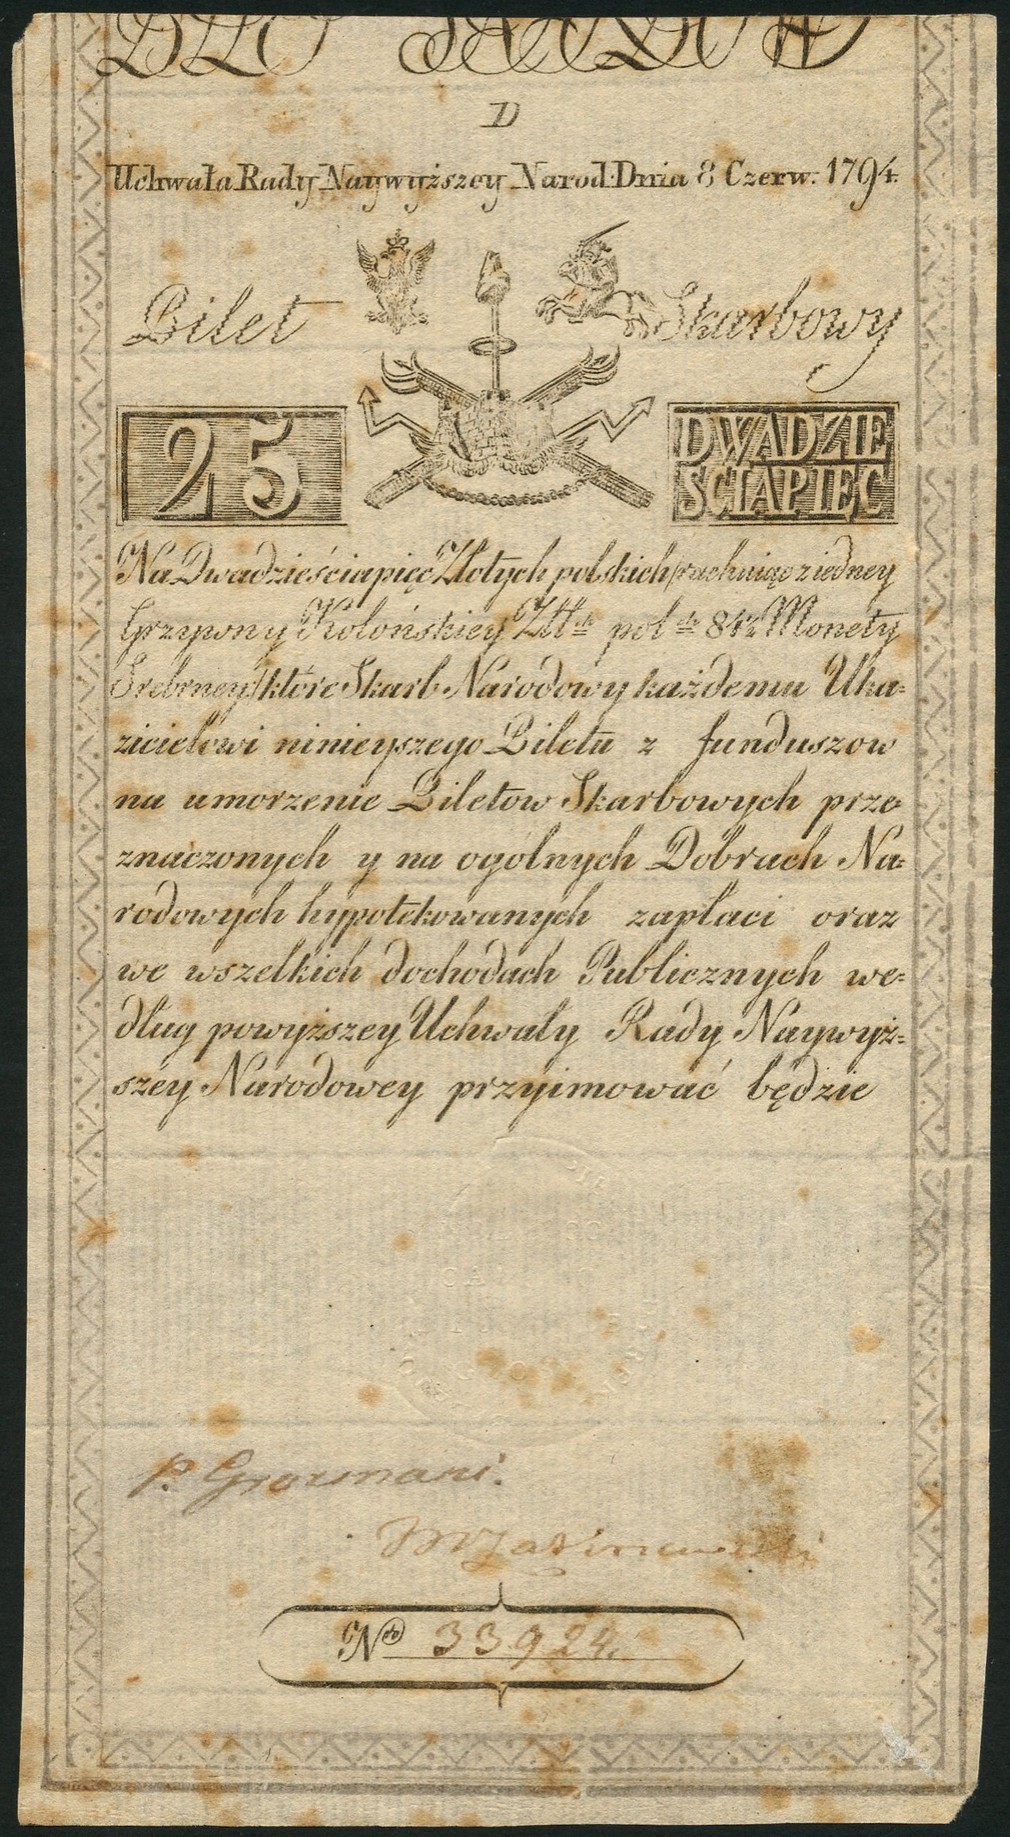 D
Uchwała Rady Naywyższey Narod: Dnia 8 Czerw: 1794.
Bilet Skarbowy
25 DWADZIE
ŚCIAPIĘĆ
Na Dwadzieściapięć Złotych polskich /rachuiąc z iedney
Grzywny Kolońskiey Złł. pol. 84½ Monety
Srebrney/ które Skarb Narodowy każdemu Uka=
zicielowi ninieyszego Biletu z funduszow
na umorzenie Biletow Skarbowych prze=
znaczonych y na ogólnych Dobrach Na=
rodowych hypotekowanych zapłaci oraz
we wszelkich dochodach Publicznych we=
dług powyższey Uchwały Rady Naywyż=
szey Narodowey przyimować będzie
P. Grozmani.
No 33924.